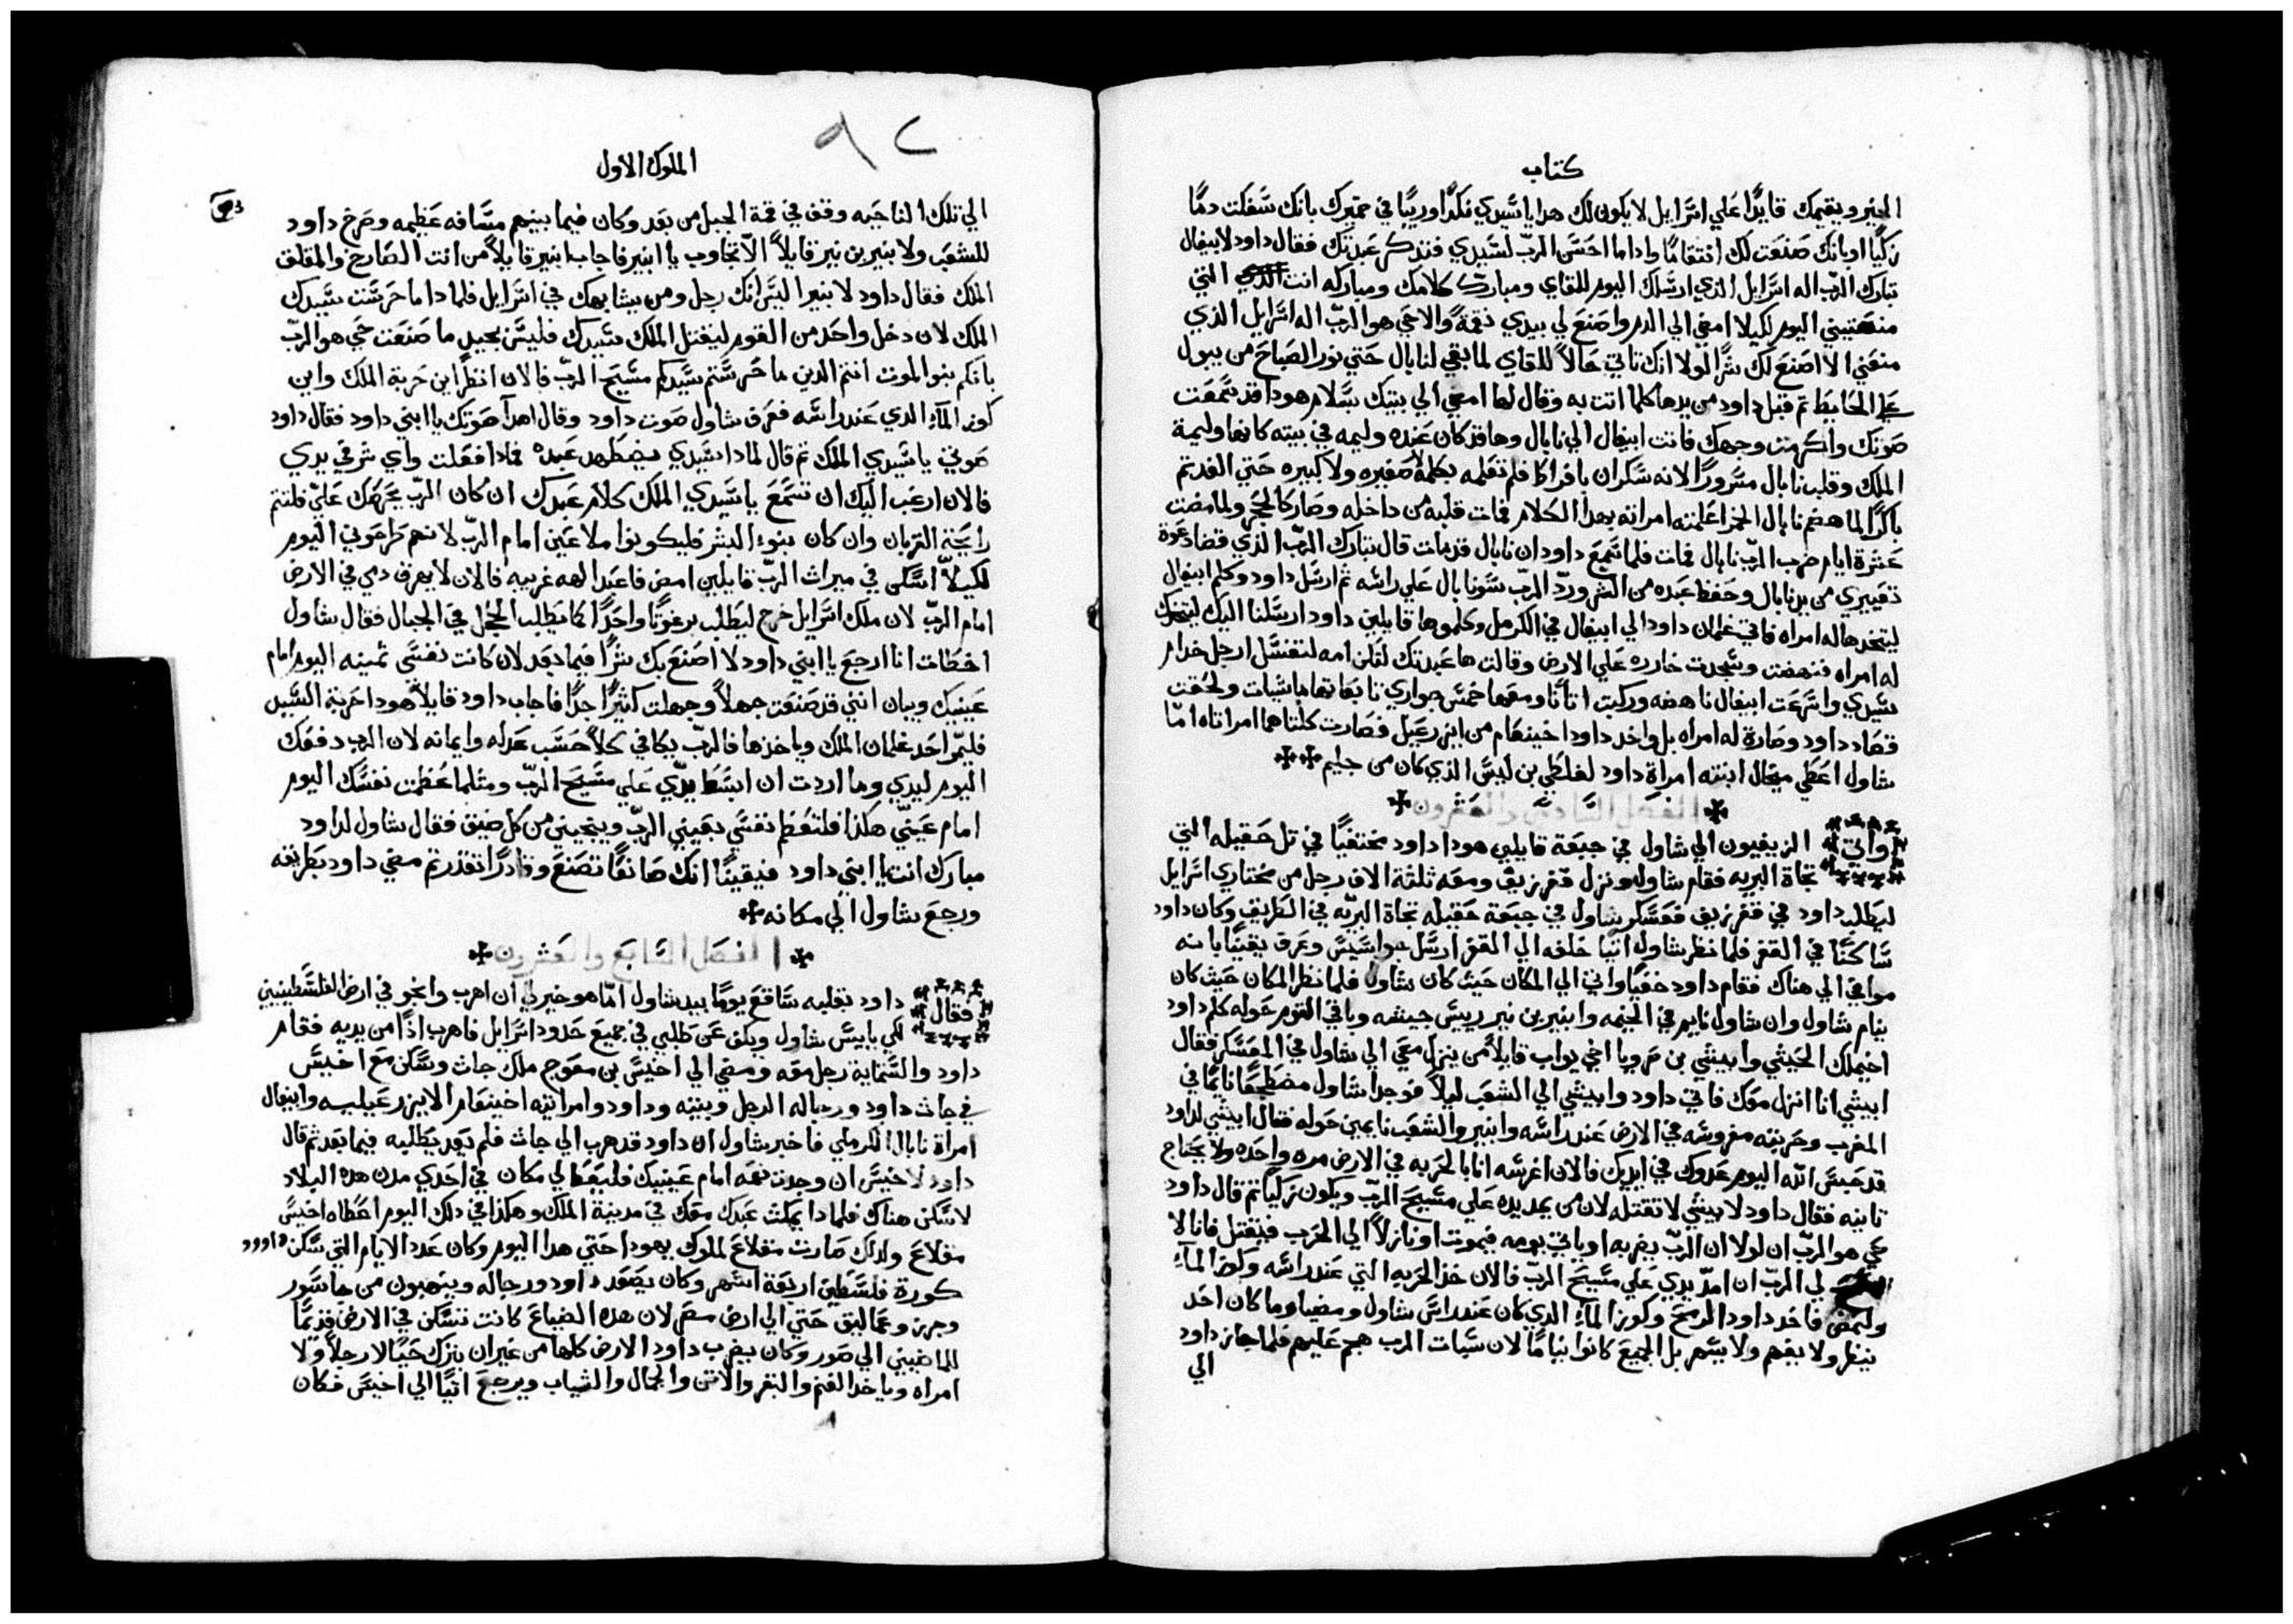 كتاب
الخير ويقيمك قايدًا علي اسرايل لا يكون لك هدا يا سيدي نكدًا وريبًا في ضميرك بانك سفكت دمًا
زكيًا او بانك صنعت لك انتقامًا وادا ما احسن الرب لسيدي فتدكر عبدتك فقال داود لابيغال
تبارك الرب اله اسرايل الذي ارسلك اليوم للقاي ومبارك كلامك ومباركه انت التي
منعتيني اليوم لكيلا امضي الي الدم واصنع لي بيدي نقمةً والا حي هو الرب اله اسرايل الذي
منعني الا اصنع لك شرًا لولا انك تاتي حالاً للقاي لما بقي لنابال حتي نور الصباح من يبول
علي الحايط تم قبل داود من يدها كلما اتت به وقال لها امضي الي بيتك بسلام هودا قد سمعت
صوتك واكرمت وجهك فاتت ابيغال الي نابال وها قد كان عنده وليمه في بيته كانها وليمة
الملك وقلب نابال مسرورًا لانه سكران بافراط فلم تعلمه بكلمة صغيره ولا كبيره حتي الغد تم
باكرًا لما هضم نابال الخمر اعلمته امراته بهدا الكلام فمات قلبه من داخله وصار كالحجر ولما مضت
عشرة ايام ضرب الرب نابال فمات فلما سمع داود ان نابال قد مات قال تبارك الرب الذي قضا دعوة
تعييري من يد نابال وحفظ عبده من الشر ورد الرب سو نابال علي راسه تم ارسل داود وكلم ابيغال
ليتخدها له امراه فاتي غلمان داود الي ابيغال في الكرمل وكلموها قايلين داود ارسلنا اليك ليتخدك
له امراه فنهضت وسجدت خاره علي الارض وقالت ها عبدتك لتكن امه لتغسل ارجل خدام
سيدي واسرعت ابيغال ناهضه وركبت اتانًا ومعها خمس جواري تابعاتها ماشيات ولحقت
قصاد داود وصارة له امراه بل واخد داود اخينعام من ايزرعيل فصارت كلتاهما امراتاه امّا
شاول اعطي ميخال ابنته امراة داود لفلطي بن ليس الذي كان من جليم
الفصل السادس والعشرون
واتي الزيفيون الي شاول في جبعة قايلين هودا داود مختفيًا في تل حقيله التي
تجاة البريه فقام شاول ونزل قفر زيف ومعه ثلثة الاف رجل من مختاري اسرايل
ليطلب داود في قفر زيف فعسكر شاول في جبعة حقيله تجاة البريه في الطريق وكان داود
ساكنًا في القفر فلما نظر شاول اتيًا خلفه الي القفر ارسل جواسيس وعرف يقينًا بانه
موافي الي هناك فقام داود خفيًا واتي الي المكان حيث كان شاول فلما نظر المكان حيث كان
ينام شاول وان شاول نايم في الخيمه وابنير بن نير رييس جيشه وباقي القوم حوله كلم داود
اخيملك الحيثي وابيشي بن صرويا اخي يواب قايلاً من ينزل معي الي شاول في المعسكر فقال
ابيشي انا انزل معك فاتي داود وابيشي الي الشعب ليلاً فوجدا شاول مضطجعًا نايمًا في
المضرب وحربته مغروسه في الارض عند راسه وابنير والشعب نايمين حوله فقال ابيشي لداود
قد حبس الله اليوم عدوك في ايديك فالان اغرسه انا بالحربه في الارض مره واحده ولا يحتاج
تانيه فقال داود لابيشي لا تقتله لان من يمد يده علي مسيح الرب ويكون زكيًا تم قال داود
حي هو الرب ان لولا ان الرب يضربه او ياتي يومه فيموت او نازلاً الي الحرب فيقتل فانا لا
لي الرب ان امد يدي علي مسيح الرب فالان خد الحربه التي عند راسه وكوز المآء
ولنمض فاخد داود الرمح وكوز المآء الدي كان عند راس شاول ومضيا وما كان احد
ينظر ولا يفهم ولا يسهر بل الجميع كانوا نيامًا لان سبات الرب هجم عليهم فلما جاز داود
الي
٩٢
الملوك الاول
الي تلك الناحيه وقف في قمة الجبل من بعد وكان فيما بينهم مسافه عظيمه وصرخ داود
للشعب ولابنير بن نير قايلاً الا تجاوب يا ابنير فاجاب ابنير قايلاً من انت الصارخ والمقلق
الملك فقال داود لابنير اليس انك رجل ومن يشابهك في اسرايل فلمادا ما حرست سيدك
الملك لان دخل واحد من القوم ليقتل الملك سيدك فليس بجيد ما صنعت حي هو الرب
بانكم بنوا الموت انتم الدين ما حرستم سيدكم مسيح الرب فالان انظر اين حربة الملك واين
كوز المآء الدي عند راسه فعرف شاول صوت داود وقال اهدا صوتك يا ابني داود فقال داود
صوتي يا سيدي الملك تم قال لمادا سيدي يضطهد عبده فمادا فعلت واي شر في يدي
فالان ارغب اليك ان تسمع يا سيدي الملك كلام عبدك ان كان الرب يحركك علي فلتشم
رايحة القربان وان كان بنوء البشر فليكونوا ملاعين امام الرب لانهم طرحوني اليوم
لكيلا اسكن في ميراث الرب قايلين امض فاعبد الهه غريبه فالان لا يهرق دمي في الارض
امام الرب لان ملك اسرايل خرج ليطلب برغوتًا واحدًا كما يطلب الحجل في الجبال فقال شاول
اخطات انا ارجع يا ابني داود لا اصنع بك شرًا فيما بعد لان كانت نفسي تمينه اليوم امام
عينيك وبيان انني قد صنعت جهلاً وجهلت كثيرًا جدًا فاجاب داود قايلاً هودا حربة السيد
فليمر احد غلمان الملك وياخدها فالرب يكافي كلاً حسب عدله وايمانه لان الرب دفعك
اليوم ليدي وما اردت ان ابسط يدي علي مسيح الرب ومتلما عظمت نفسك اليوم
امام عيني هكذا فلتعظم نفسي بعيني الرب وينجيني من كل ضيق فقال شاول لداود
مبارك انت يا ابني داود فيقينًا انك صانعًا تصنع وقادرًا تقدر تم مضي داود بطريقه
ورجع شاول الي مكانه
الفصل السابع والعشرون
فقال داود بقلبه ساقع يومًا بيد شاول امّا هو خير لي ان اهرب وانجو في ارض الفلسطينيين
لكي يايس شاول ويكف عن طلبي في جميع حدود اسرايل فاهرب ادًا من يديه فقام
داود والستماية رجل معه ومضي الي اخيس بن معوج ملك جات وسكن مع اخيس
في جات داود ورجاله الرجل وبيته وداود وامراتيه اخينعام الايزرعيليه وابيغال
امراة نابال الكرملي فاخبر شاول ان داود قد هرب الي جات فلم يعد يطلبه فيما بعد تم قال
داود لاخيس ان وجدت نعمه امام عينيك فليعط لي مكان في احدي مدن هده البلاد
لاسكن هناك فلمادا يمكث عبدك معك في مدينة الملك وهكذا في دلك اليوم اعطاه اخيس
صقلاغ ولدلك صارت صقلاغ لملوك يهودا حتي هدا اليوم وكان عدد الايام التي سكن داوود
كورة فلسطين اربعة اشهر وكان يصعد داود ورجاله وينهبون من جاسور
وجرز وعماليق حتي الي ارض مصر لان هده الضياع كانت تسكن في الارض قديمًا
للماضيين الي صور وكان يضرب داود الارض كلها من غير ان يترك حيًا لا رجلاً ولا
امراه وياخد الغنم والبقر والاتن والجمال والثياب ويرجع اتيًا الي اخيس فكان